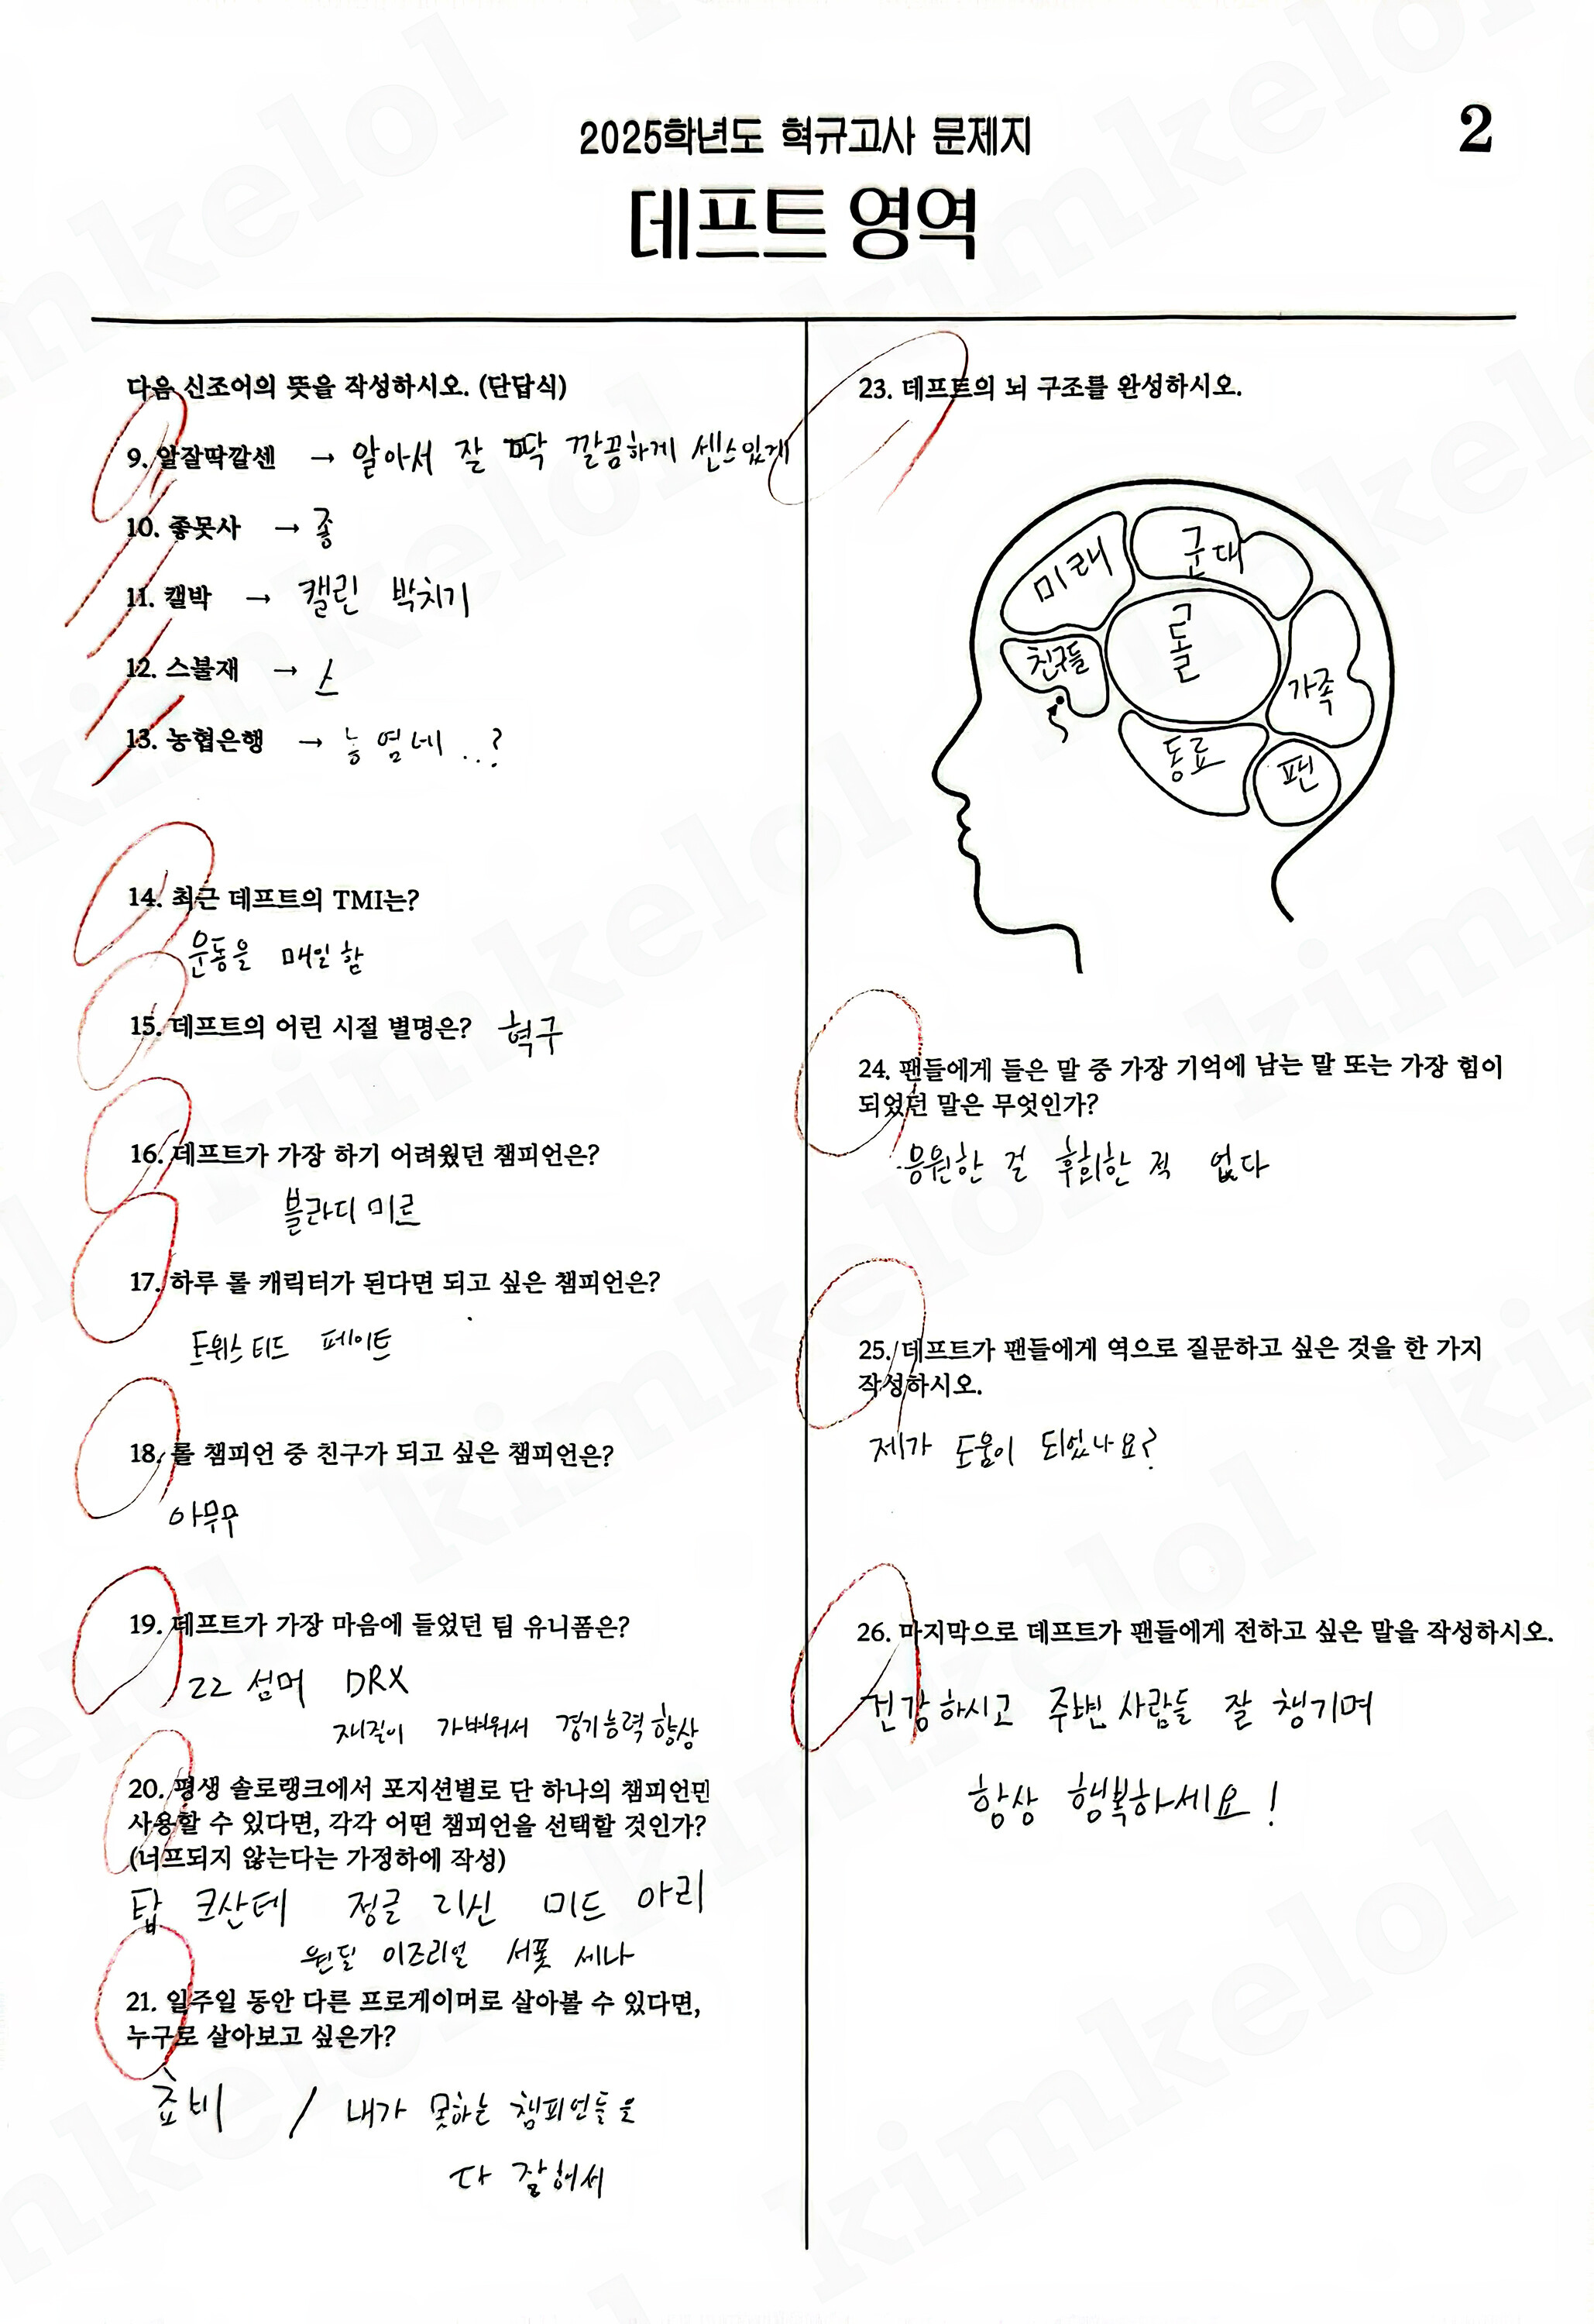 2025학년도 혁규고사 문제지
2
데프트 영역
다음 신조어의 뜻을 작성하시오. (단답식)
9. 알잘딱깔센 → 알아서 잘 딱 깔끔하게 센스있게
10. 좋못사 → 좋
11. 캘박 → 캘린 박치기
12. 스불재 → 스
13. 농협은행 → 농 염네..?
14. 최근 데프트의 TMI는?
운동을 매일 함
15. 데프트의 어린 시절 별명은? 혁구
16. 데프트가 가장 하기 어려웠던 챔피언은?
블라디미르
17. 하루 롤 캐릭터가 된다면 되고 싶은 챔피언은?
트위스티드 페이트
18. 롤 챔피언 중 친구가 되고 싶은 챔피언은?
아무무
19. 데프트가 가장 마음에 들었던 팀 유니폼은?
22 섬머 DRX
재질이 가벼워서 경기능력향상
20. 평생 솔로랭크에서 포지션별로 단 하나의 챔피언만
사용할 수 있다면, 각각 어떤 챔피언을 선택할 것인가?
(너프되지 않는다는 가정하에 작성)
탑 크산테 정글 리신 미드 아리
원딜 이즈리얼 서폿 세나
21. 일주일 동안 다른 프로게이머로 살아볼 수 있다면,
누구로 살아보고 싶은가?
쵸비 / 내가 못하는 챔피언들을
다 잘해서
23. 데프트의 뇌 구조를 완성하시오.
미래
군대
친구들
롤
가족
동료
팬
24. 팬들에게 들은 말 중 가장 기억에 남는 말 또는 가장 힘이
되었던 말은 무엇인가?
응원한 걸 후회한 적 없다
25. 데프트가 팬들에게 역으로 질문하고 싶은 것을 한 가지
작성하시오.
제가 도움이 되었나요?
26. 마지막으로 데프트가 팬들에게 전하고 싶은 말을 작성하시오.
건강하시고 주변 사람들 잘 챙기며
항상 행복하세요!
kimkelol